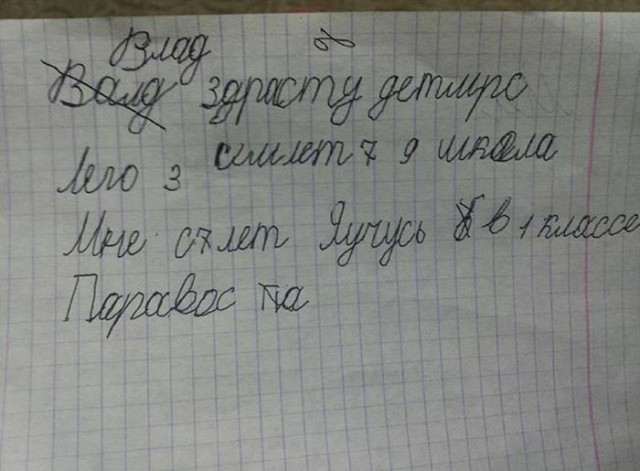 Влад
Валд здрасту детмирс
Лего з симлет 7 9 школа
Мне с7лет Яучусь в 1 классе
Паравос па